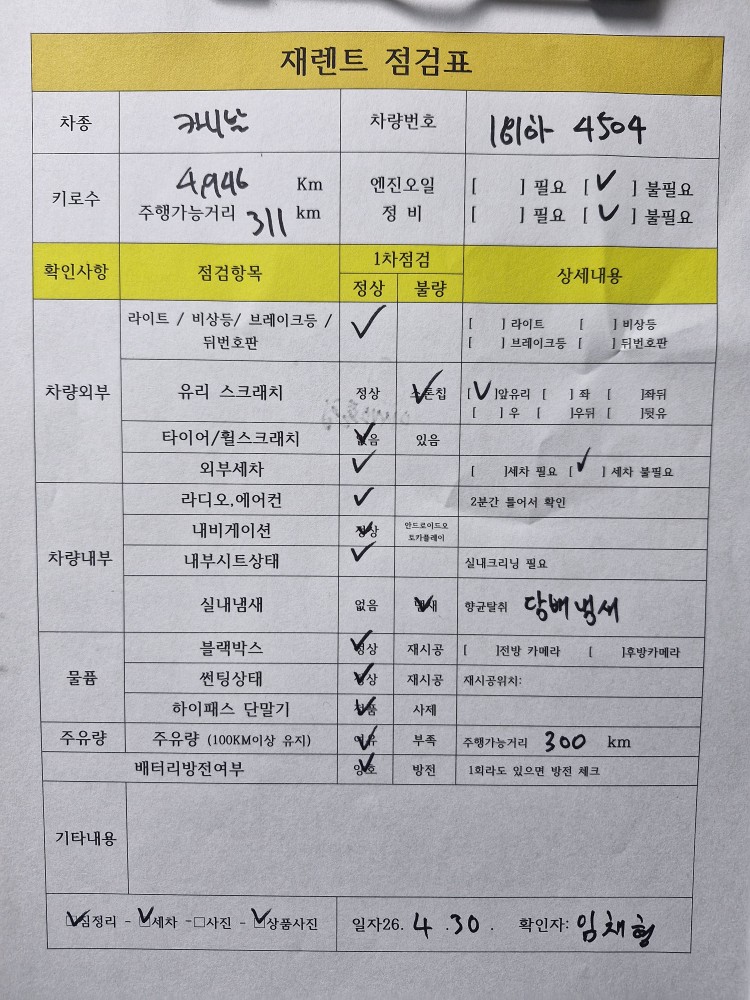 재렌트 점검표
차종 카니발 차량번호 161하 4504
키로수 Km 엔진오일 [ ] 필요 [ ✓ ] 불필요
주행가능거리 311 km 정 비 [ ] 필요 [ ✓ ] 불필요
확인사항 점검항목 1차점검 상세내용
정상 불량
차량외부 라이트 / 비상등/ 브레이크등 / 뒤번호판 ✓ [ ] 라이트 [ ] 비상등
[ ] 브레이크등 [ ] 뒤번호판
유리 스크래치 정상 스톤칩 ✓ [ ✓ ]앞유리 [ ] 좌 [ ]좌뒤
[ ] 우 [ ]우뒤 [ ]뒷유
타이어/휠스크래치 없음 ✓ 있음
외부세차 ✓ [ ]세차 필요 [ ✓ ] 세차 불필요
차량내부 라디오,에어컨 ✓ 2분간 틀어서 확인
내비게이션 정상 ✓ 안드로이드오
토카플레이
내부시트상태 ✓ 실내크리닝 필요
실내냄새 없음 냄새 ✓ 향균탈취 담배 냄새
물품 블랙박스 정상 ✓ 재시공 [ ]전방 카메라 [ ]후방카메라
썬팅상태 정상 ✓ 재시공 재시공위치:
하이패스 단말기 정품 ✓ 사제
주유량 주유량 (100KM이상 유지) 여유 ✓ 부족 주행가능거리 300 km
배터리방전여부 양호 ✓ 방전 1회라도 있으면 방전 체크
기타내용
☑짐정리 - ☑세차 -□사진 - ☑상품사진 일자26. 4 .30 . 확인자: 임채형